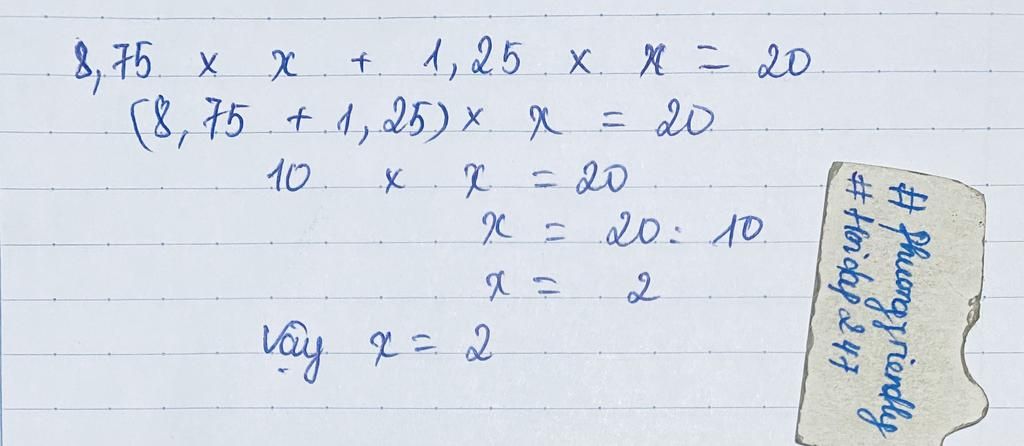 8,75 × x + 1,25 × x = 20
(8,75 + 1,25) × x = 20
10 × x = 20
x = 20 : 10
x = 2
Vậy x = 2
# phuongfriendly
# Hoidap247